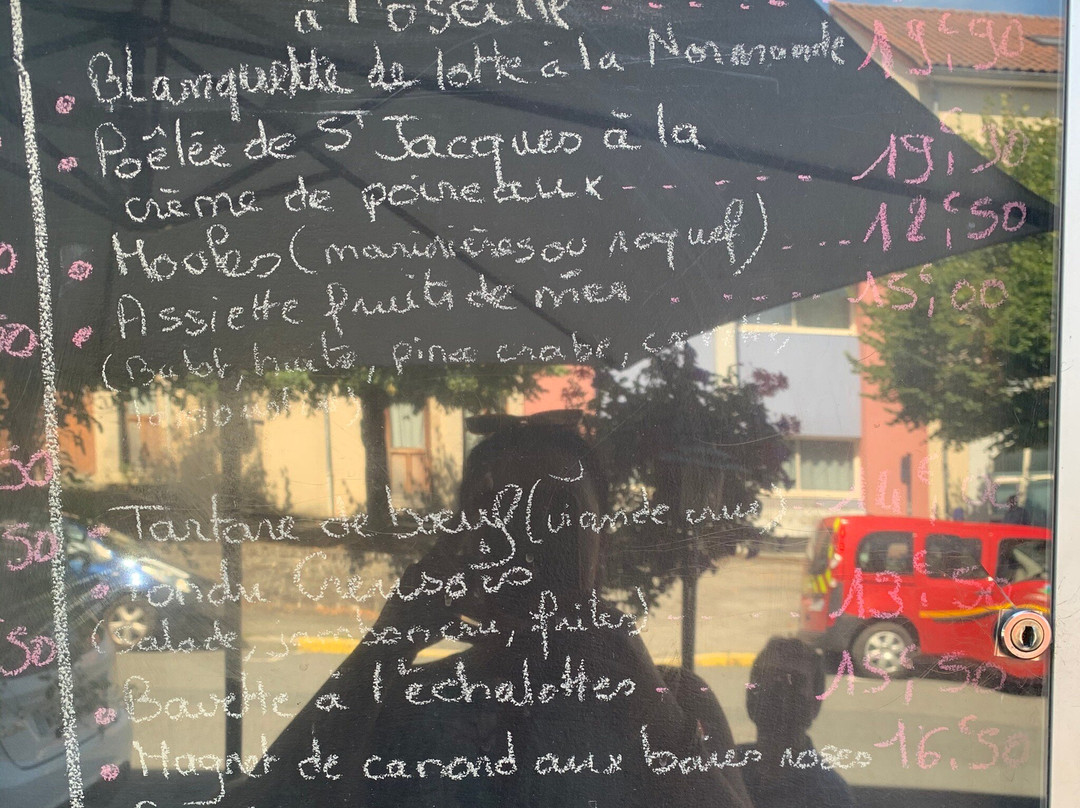 à l'oseille - - - - -
• Blanquette de lotte à la Normande 19,€90
• Poêlée de St Jacques à la
crème de poireaux - - - - - - 19,€50
• Moules (marinières ou roquef) - - - - 12,€50
• Assiette fruits de mer - - - - 15,€00
(Bulot, huits, pince crabe,
langoustine)
• Tartare de boeuf (viande crue)
Fondu Creusois 13,€50
(salade, jambon cru, frites) - - - -
• Bavette à l'échalottes - - - - 15,€50
• Magret de canard aux baies roses 16,€50
50
50
50